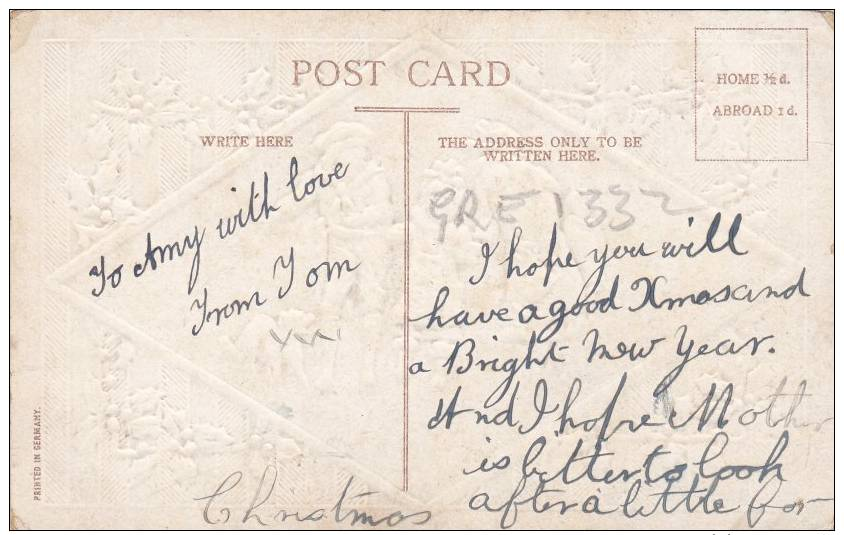 POST CARD
HOME ½ d.
ABROAD 1 d.
WRITE HERE
THE ADDRESS ONLY TO BE
WRITTEN HERE.
To Amy with love
From Tom
GRE 1332
I hope you will
have a good Xmas and
a Bright New Year.
And I hope Mother
is bitter to look
after a little for
Christmas
PRINTED IN GERMANY.